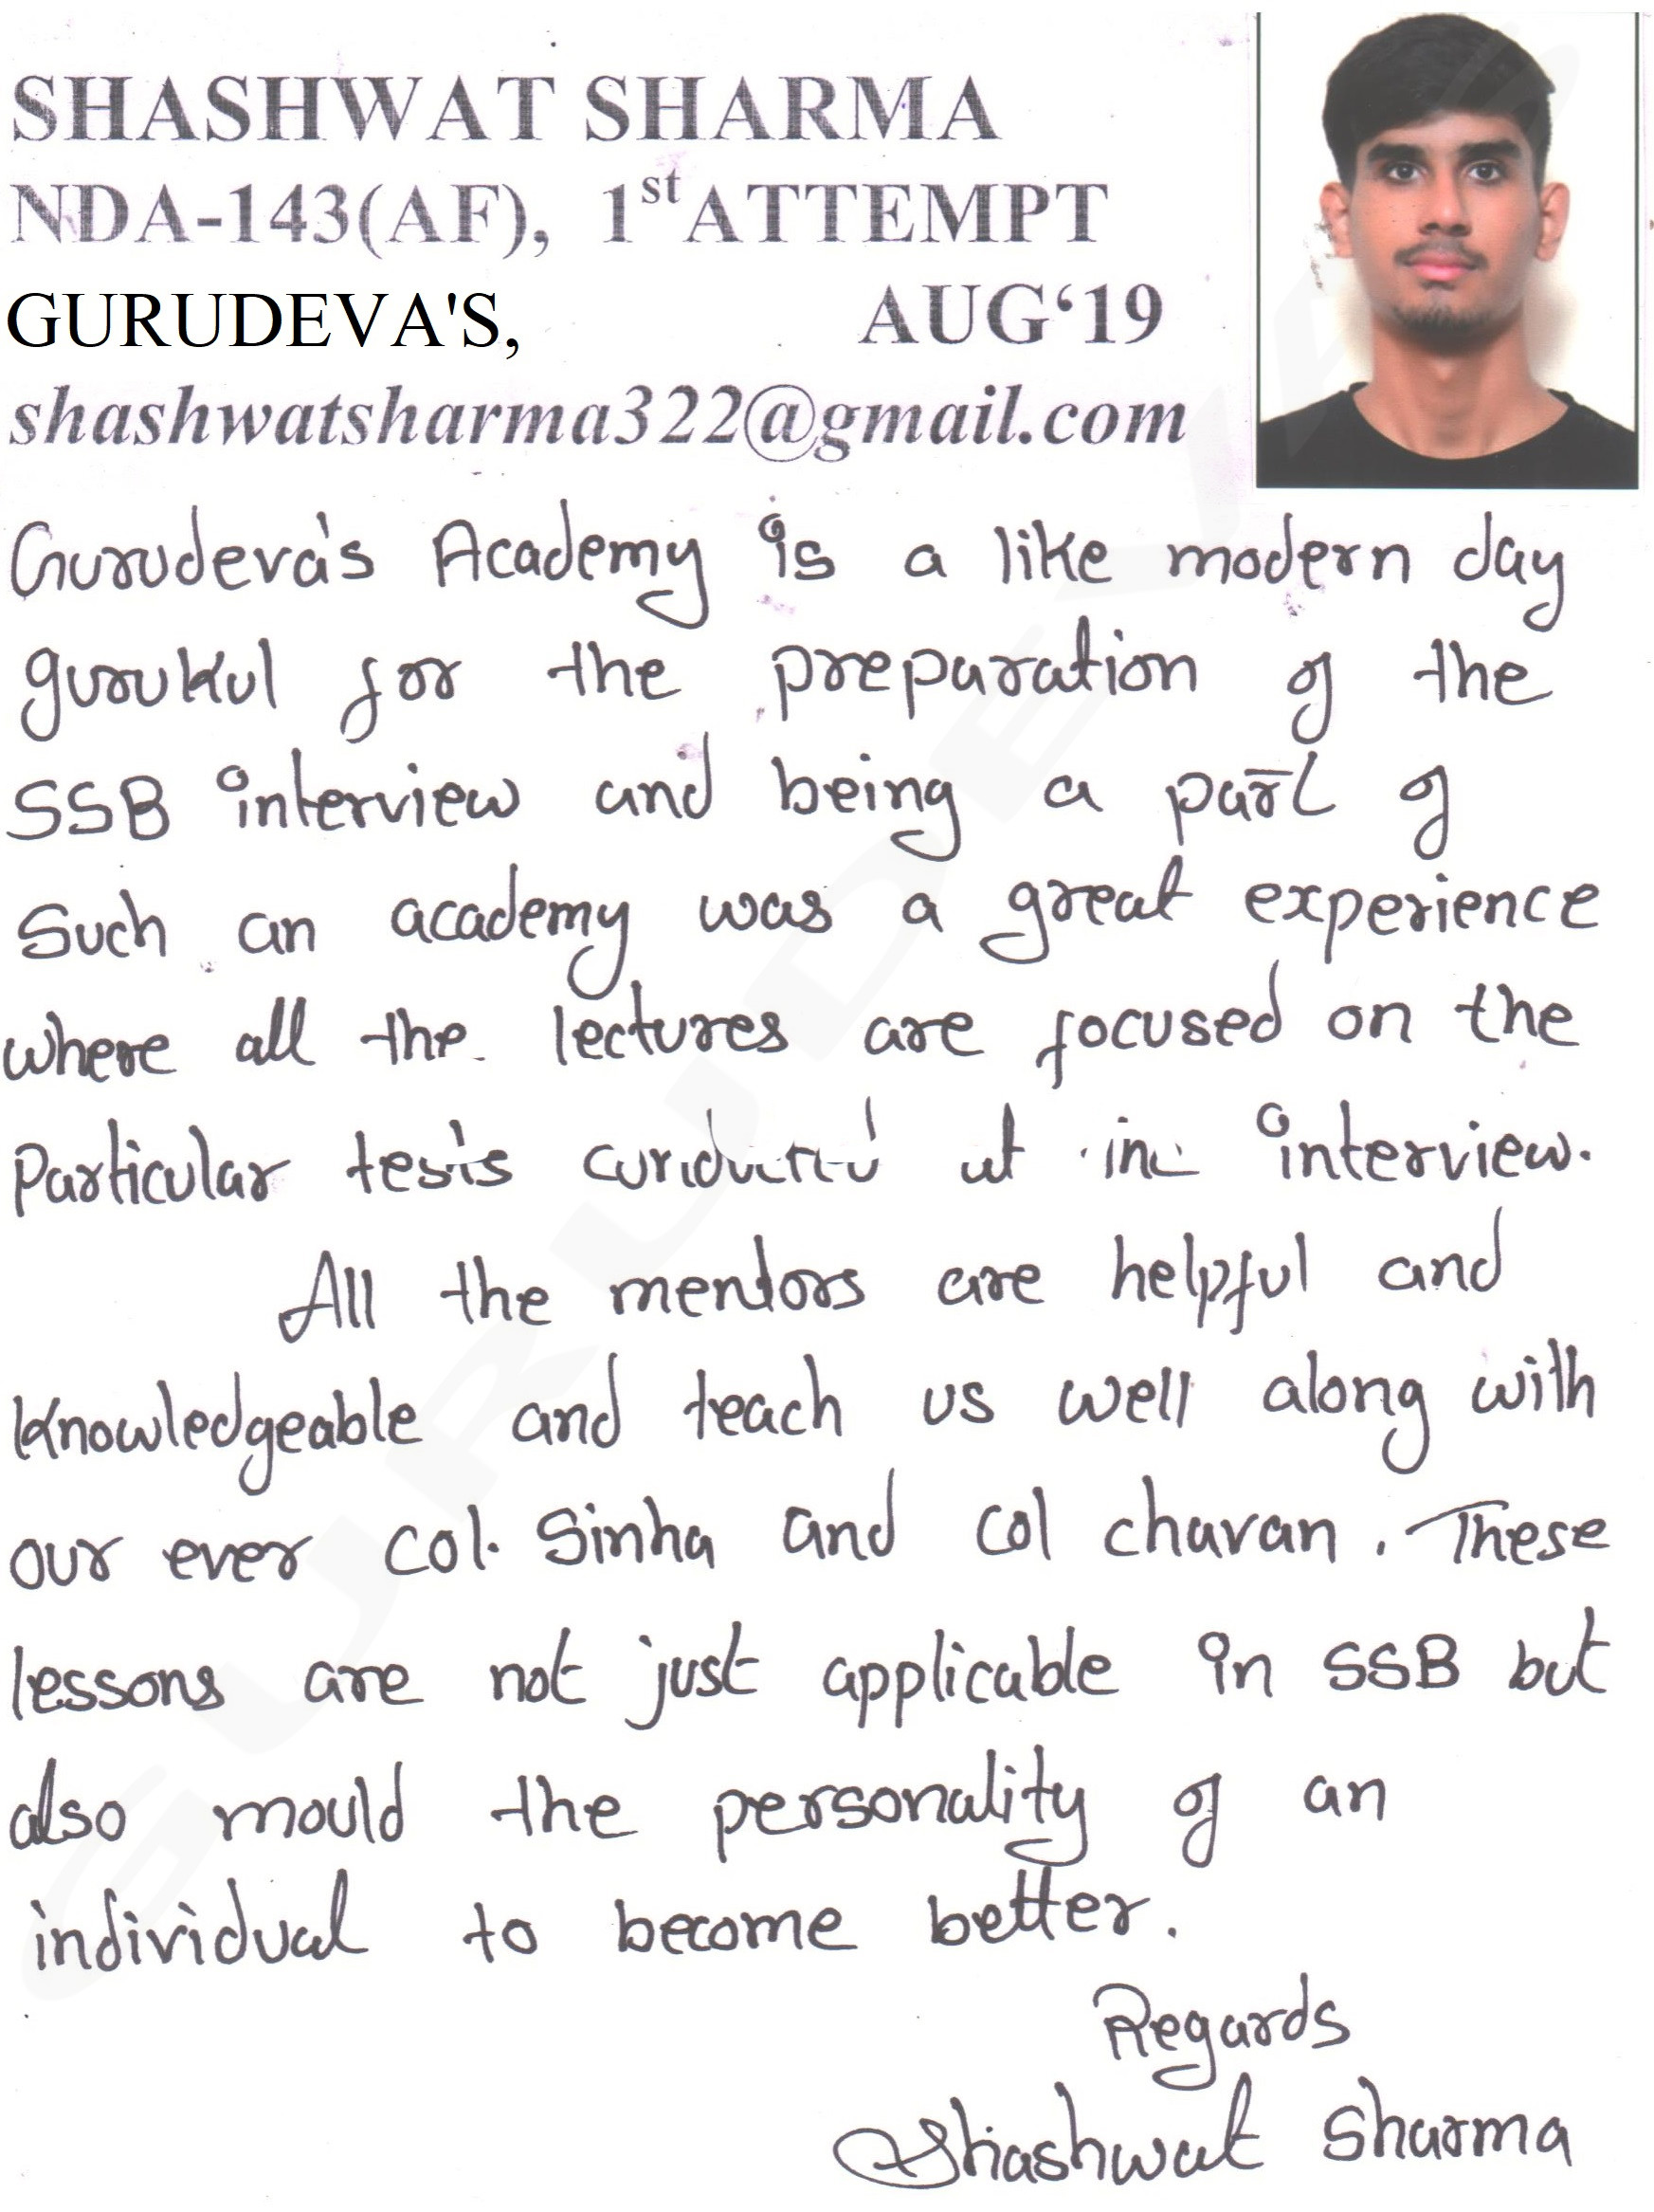 SHASHWAT SHARMA
NDA-143(AF), 1st ATTEMPT
GURUDEVA'S, AUG‘19
shashwatsharma322@gmail.com
Gurudeva's Academy is a like modern day
gurukul for the preparation of the
SSB interview and being a part of
Such an academy was a great experience
where all the lectures are focused on the
Particular tests conducted at the interview.
All the mentors are helpful and
Knowledgeable and teach us well along with
our ever col. Sinha and col chavan. These
lessons are not just applicable in SSB but
also mould the personality of an
individual to become better.
Regards
Shashwat Sharma
GURUDEVA'S